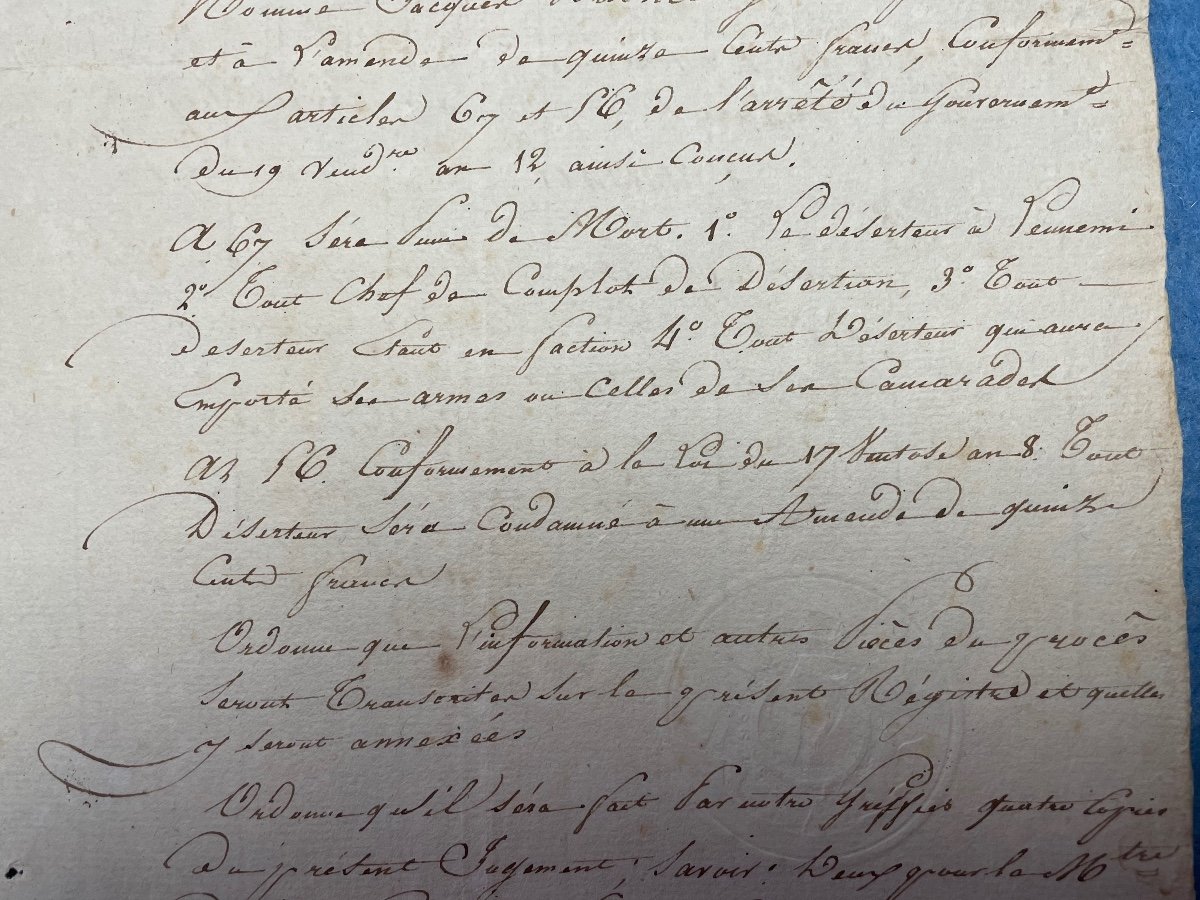 Nommé Jacques
et à L'amende de quinze Cents francs, Conformem.=
aux articles 67 et 56, de l'arrêté du Gouvernem.t=
du 19 Vend.re an 12, ainsi Conçus.
A. 67 séra puni de Mort. 1.° Le déserteur à L'ennemi
2.° Tout Chef de Complot de Désertion, 3.° Tout —
deserteur Etant en faction 4.° Tout Déserteur qui aura
Emporté ses armes ou Celles de ses Camarades
Ar 56. Conformement à la Loi du 17 Ventose an 8. Tout
Déserteur séra Condamné à une Amende de quinze
Cents francs
Ordonne que L'information et autres Pièces du procès
seront Transcrites sur le présent Régistre et quelles
y seront annexéés
Ordonne qu'il séra fait Par notre Gréffier quatre Copies
du présent Jugement; savoir: Deux pour le M.tre=